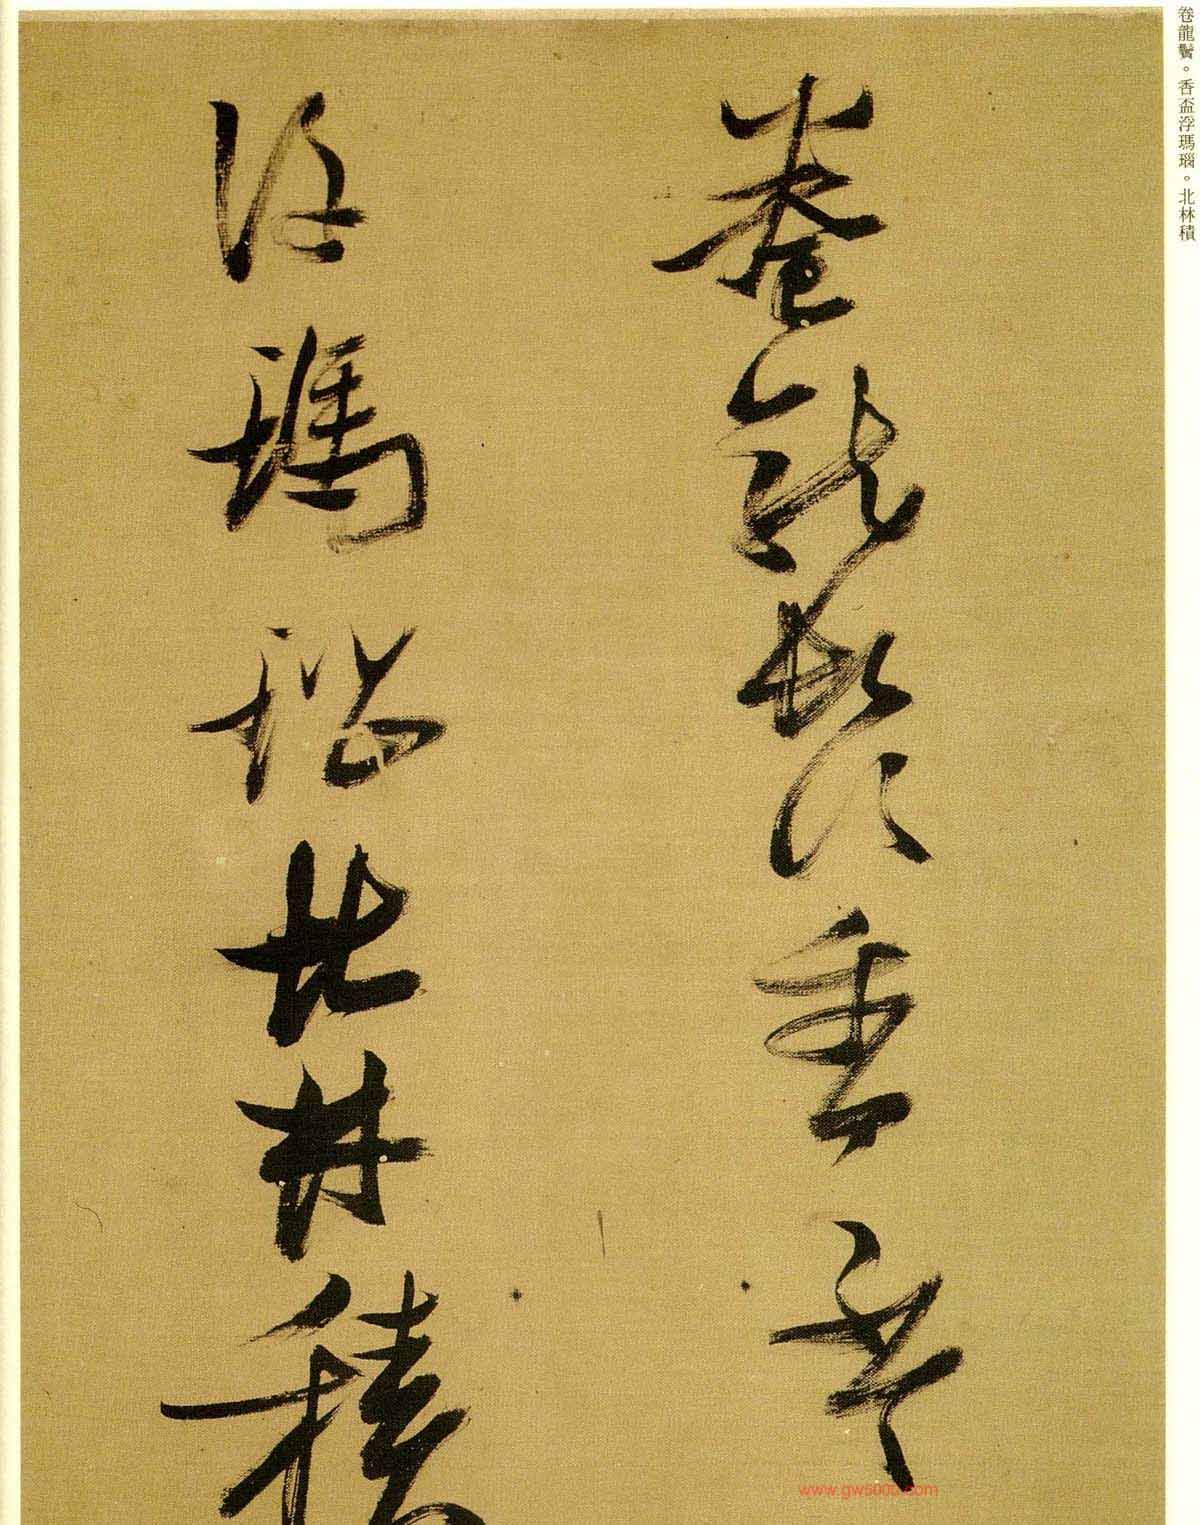 卷龍鬢。香盃浮瑪瑙。北林積
卷龍鬢香盃
浮瑪瑙北林積
www.gw5000.com